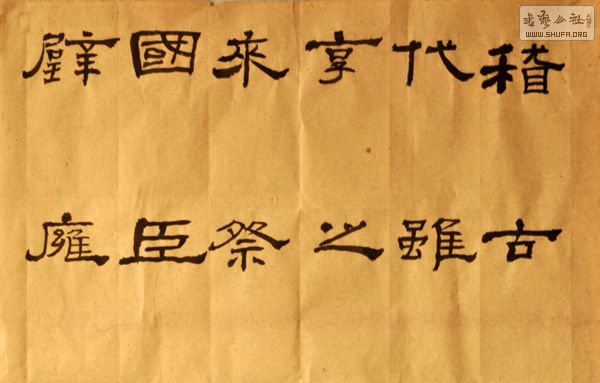 稽古
代雖
享之
来祭
國臣
璧廱
書藝公社
WWW.SHUFA.ORG